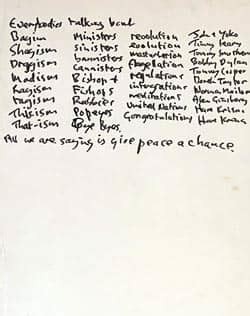 Everybodies talking bout
Bagism Ministers revolution John + Yoko
Shagism sinisters evolution Timmy Leary
Dragism bannisters masturbation Tommy Smothers
Madism Cannisters flagellation Bobby Dylan
Ragism Bishops regulations Tommy Cooper
Tagism Fishops integrations Derek Taylor
Thisism Rabbies meditations Norman Mailer
That-ism Popeyes United Nations Alen Ginsberg
Bye Byes Congratulations Hare Krishna
Hare Krishna
All we are saying is give peace a chance.